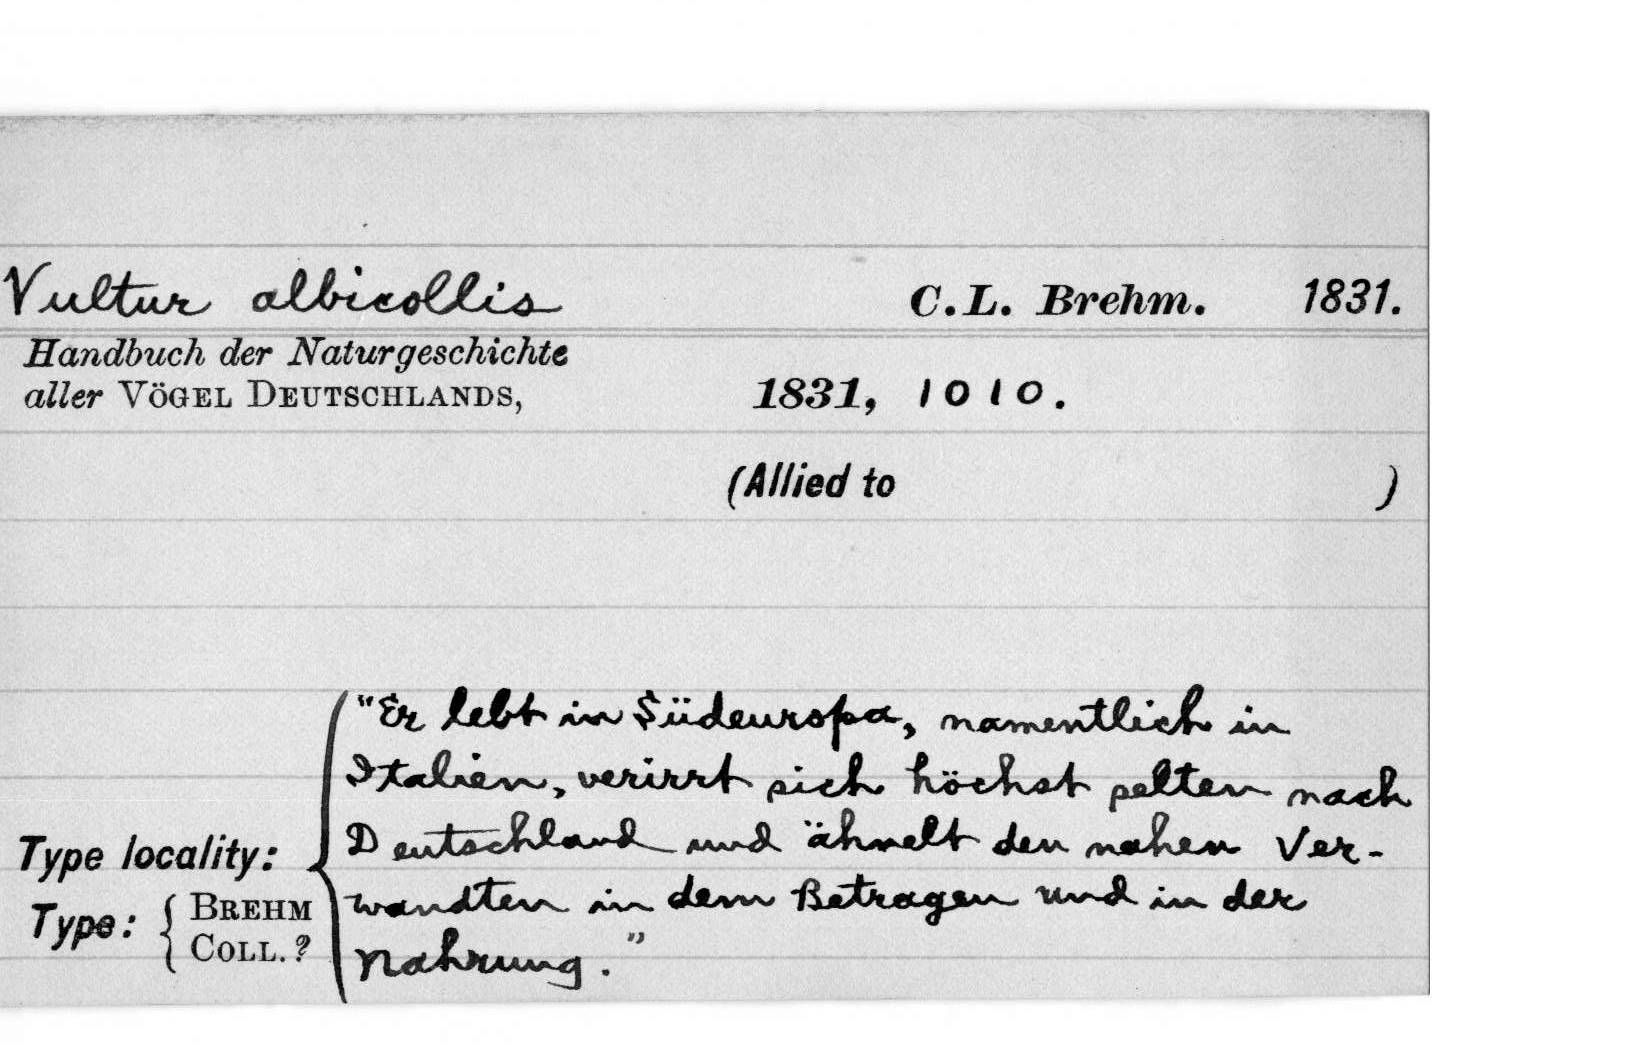 Vultur albicollis C.L. Brehm. 1831.
Handbuch der Naturgeschichte
aller VÖGEL DEUTSCHLANDS, 1831, 1010.
(Allied to )
"Er lebt in Südeuropa, namentlich in
Italien, verirrt sich höchst selten nach
Type locality: Deutschland und ähnelt den nahen Ver-
Type: BREHM COLL.? wandten in dem Betragen und in der
Nahrung."